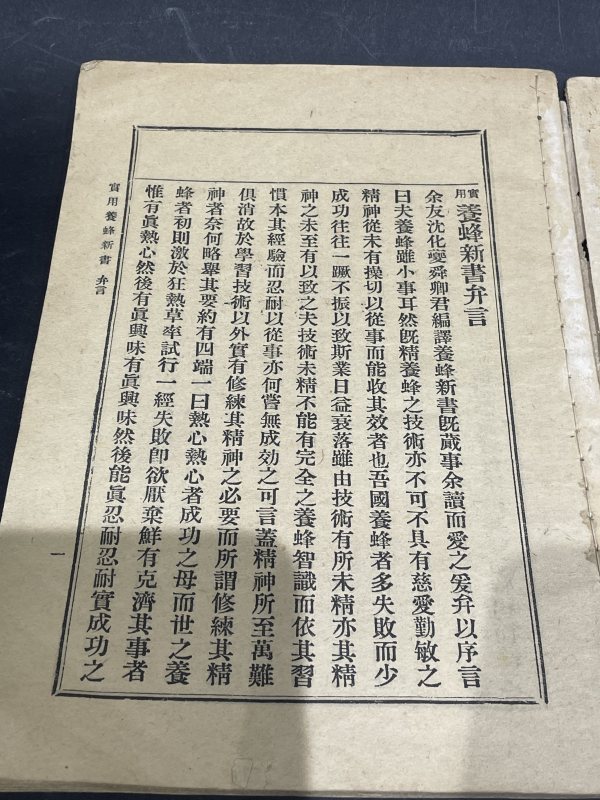 實用養蜂新書弁言
余友沈化夔舜卿君編譯養蜂新書既蕆事余讀而愛之爰弁以序言
曰夫養蜂雖小事耳然既精養蜂之技術亦不可不具有慈愛勤敏之
精神從未有操切以從事而能收其效者也吾國養蜂者多失敗而少
成功往往一蹶不振以致斯業日益衰落雖由技術有所未精亦其精
神之未至有以致之夫技術未精不能有完全之養蜂智識而依其習
慣本其經驗而忍耐以從事亦何嘗無成効之可言蓋精神所至萬難
俱消故於學習技術以外實有修練其精神之必要而所謂修練其精
神者奈何略舉其要約有四端一曰熱心熱心者成功之母而世之養
蜂者初則激於狂熱草率試行一經失敗卽欲厭棄鮮有克濟其事者
惟有眞熱心然後有眞興味有眞興味然後能眞忍耐忍耐實成功之
實用養蜂新書 弁言
一